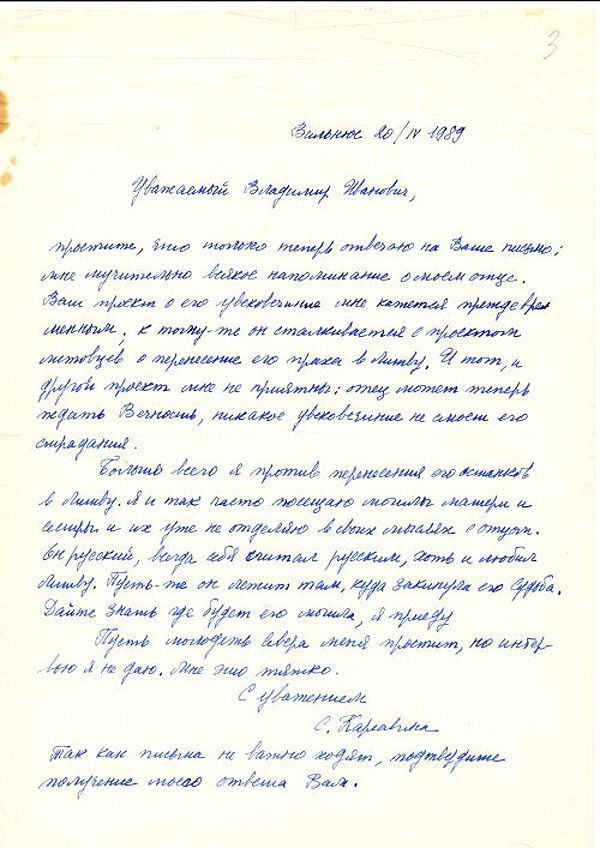 3
Вильнюс 20/IV 1989
Уважаемый Владимир Иванович,
простите, что только теперь отвечаю на Ваше письмо;
мне мучительно всякое напоминание о моем отце.
Ваш проект о его увековечение мне кажется преждевре
менным; к тому-же он сталкивается с проектом
литовцев о перенесение его праха в Литву. И тот, и
другой проект мне не приятны: отец может теперь
ждать Вечность, никакое увековечиние не смоет его
страдания.
Больше всего я против перенесения его останков
в Литву. Я и так часто посещаю могилы матери и
сестры и их уже не отделяю в своих мыслях с отцом.
Он русский, всегда себя считал русским, хоть и любил
Литву. Пусть-же он лежит там, куда закинула его Судьба.
Дайте знать где будет его могила, я приеду
Пусть молодеть Севера меня простит, но интер-
вью я не даю. Мне это тяжко.
С уважением
С. Карсавина
Так как письма не важно ходят, подтвердите
получение моего ответа Вам.